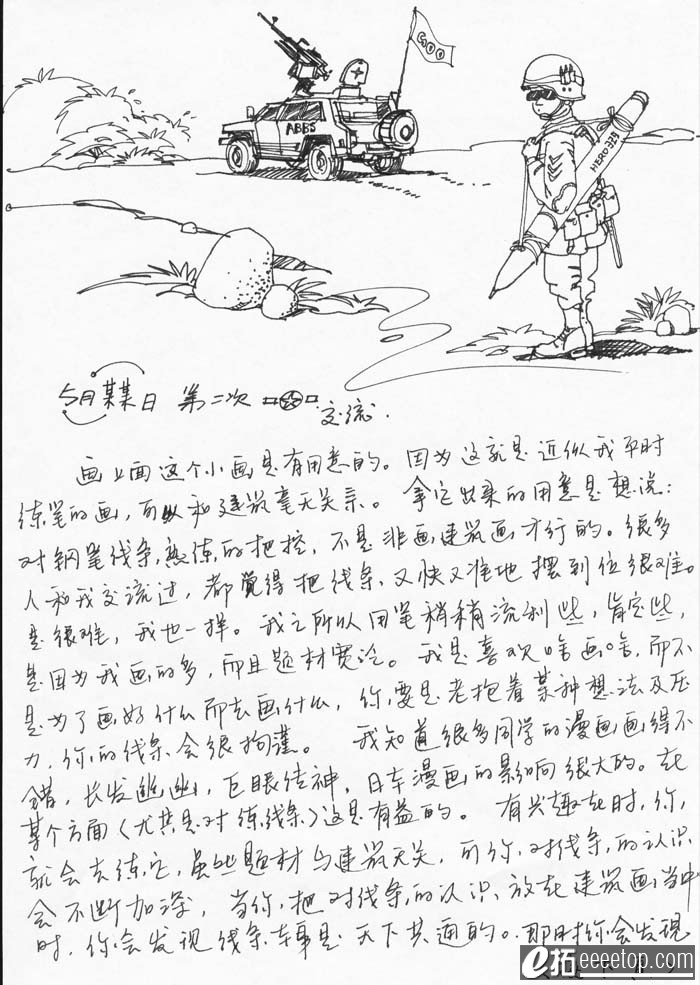 GOO
ABBS
HERO 329
5月某某日 第二次 交流.
画上面这个小画是有用意的。因为这就是近似我平时
练笔的画,而且和建筑毫无关系。拿它出来的用意是想说:
对钢笔线条熟练的把控,不是非画建筑画才行的。很多
人和我交流过,都觉得把线条又快又准地摆到位很难。
是很难,我也一样。我之所以用笔稍稍流利些,肯定些,
是因为我画的多,而且题材宽泛。我是喜欢啥画啥,而不
是为了画好什么而去画什么,你要是老抱着某种想法及压
力,你的线条会很拘谨。 我知道很多同学的漫画画得不
错,长发幽幽,巨眼传神,日本漫画的影响很大的。在
某个方面(尤其是对练线条)这是有益的。有兴趣在时,你
就会去练它,虽些题材与建筑无关,可你对线条的认识
会不断加深,当你把对线条的认识放在建筑画当中
时,你会发现线条本事是天下共通的。那时你会发现
e拓 eeeetop.com